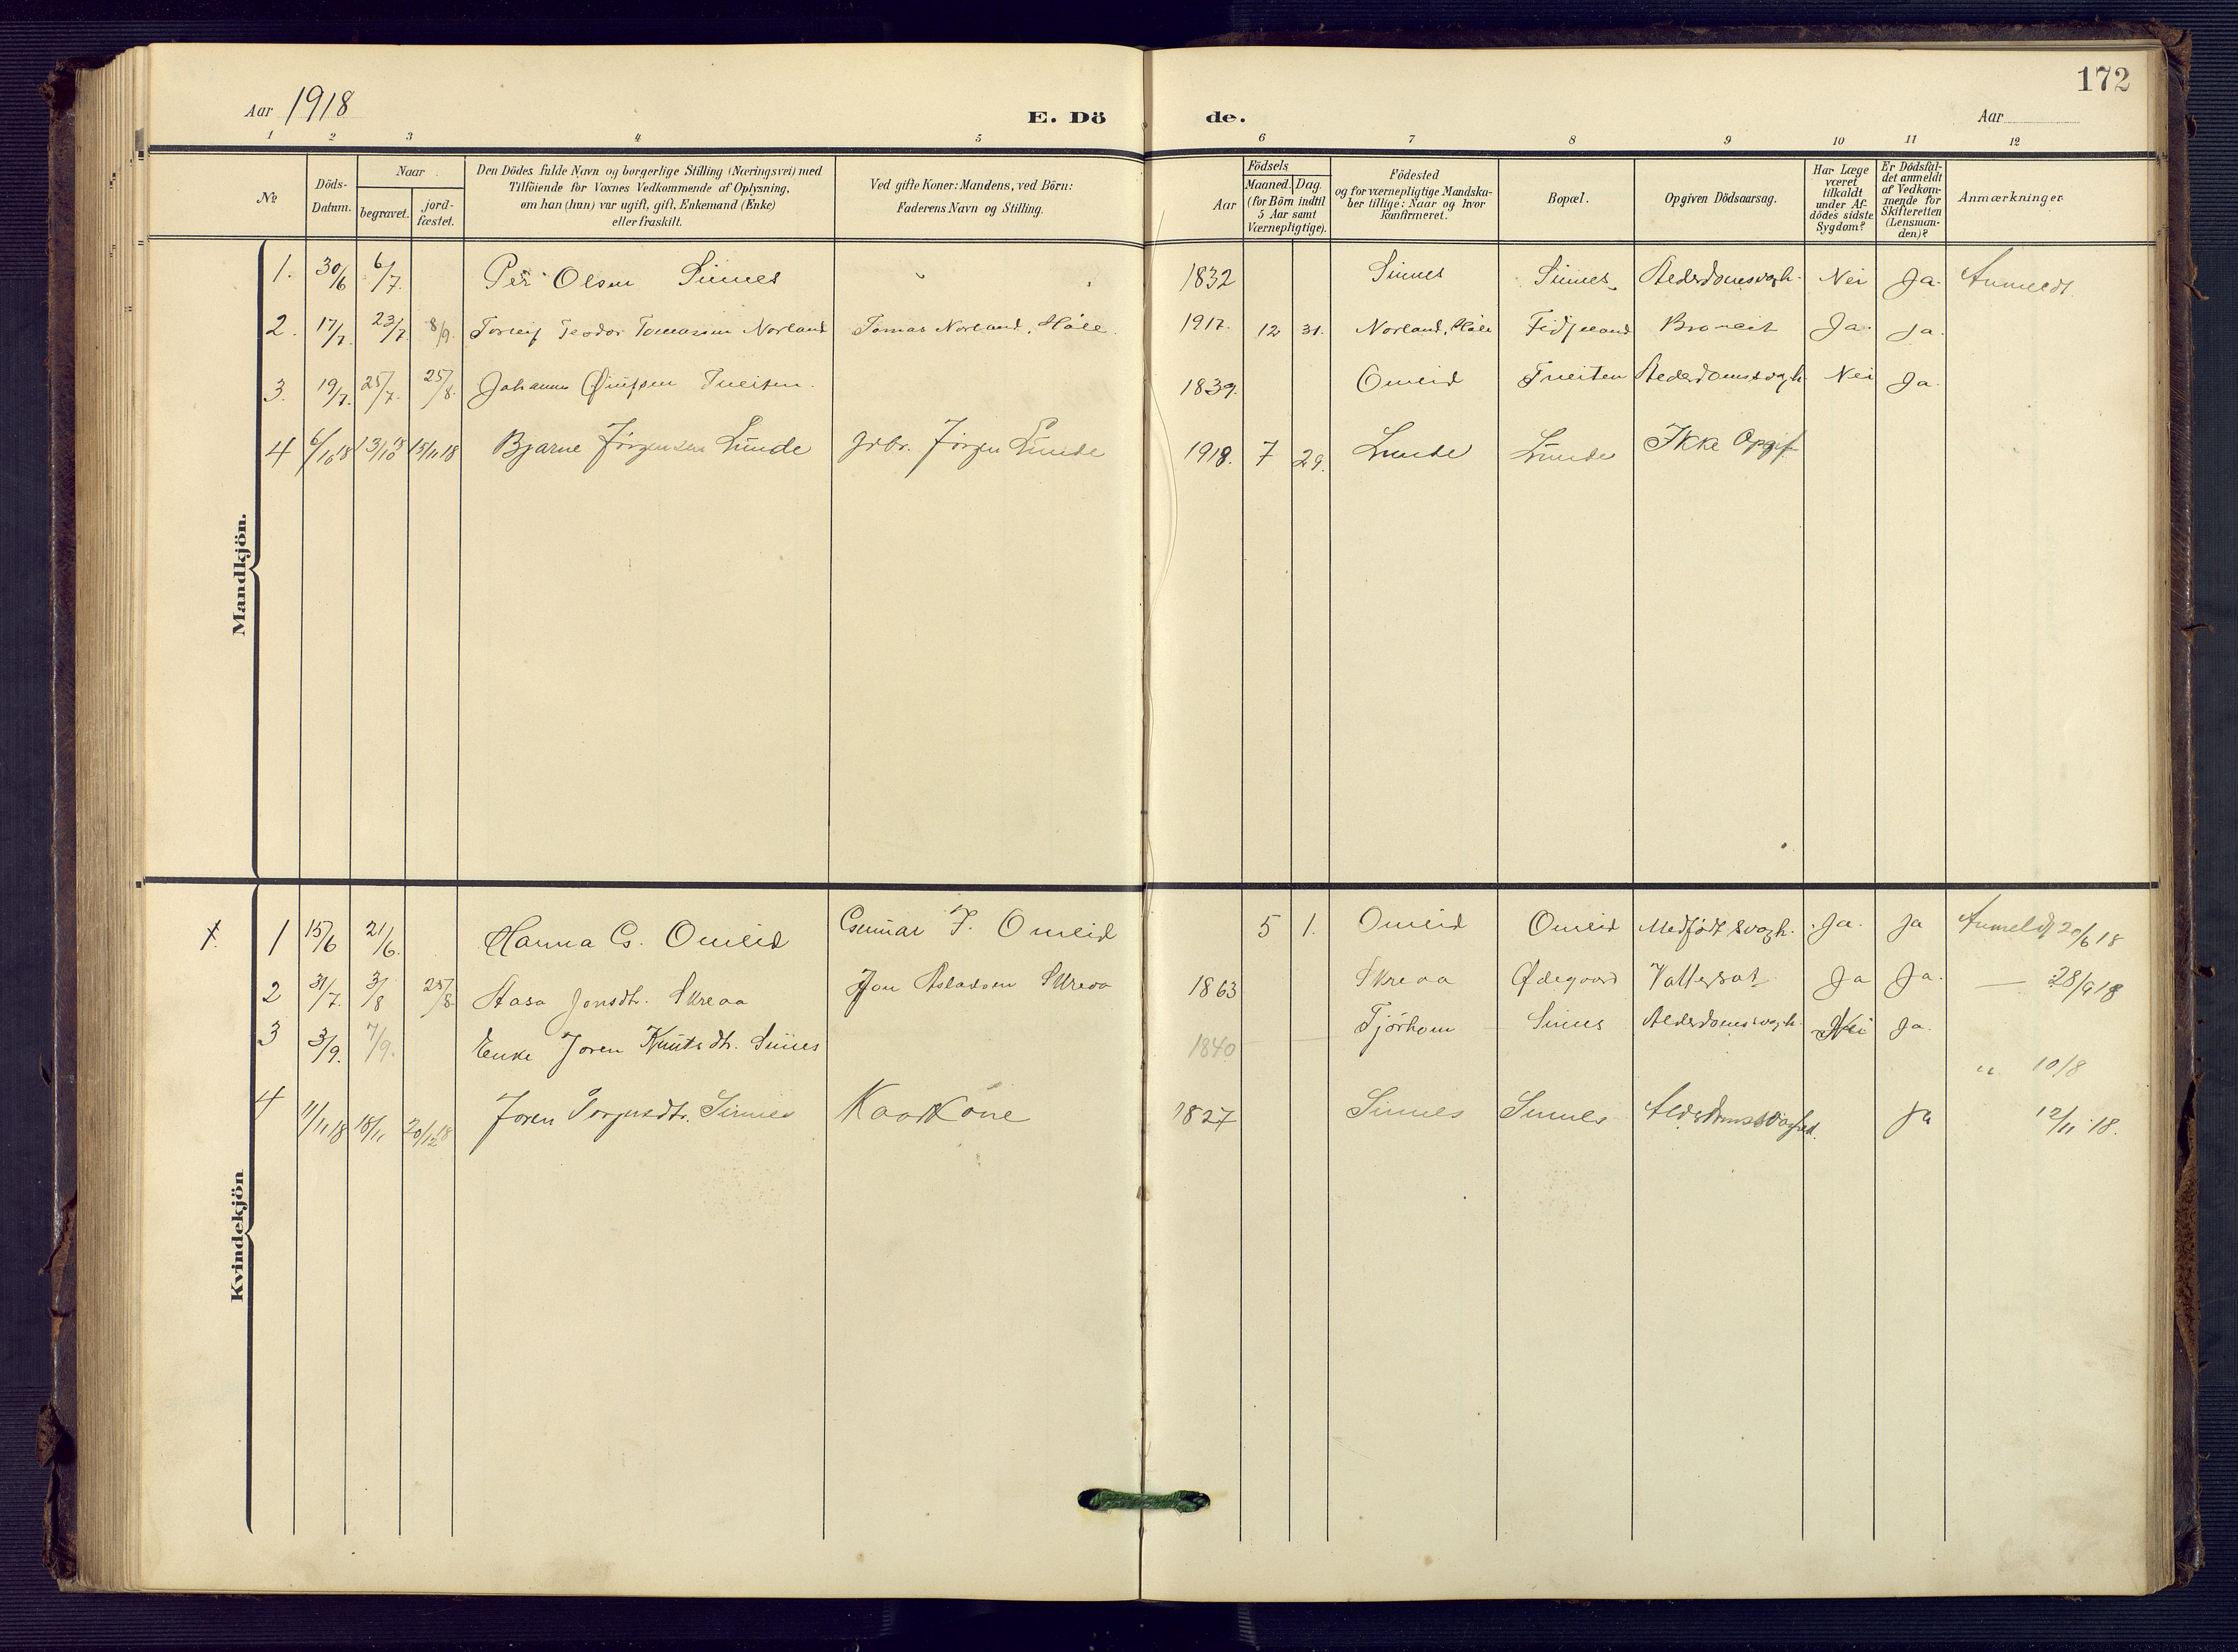 172
Aar 1918 E. Dö de. Aar
1 2 3 4 5 6 7 8 9 10 11 12
№
Döds-Datum.
Naar
begravet.
jord-fæstet.
Den Dödes fulde Navn og borgerlige Stilling (Næringsvei) med
Tilföiende for Voxnes Vedkommende af Oplysning,
om han (hun) var ugift, gift, Enkemand (Enke)
eller fraskilt.
Ved gifte Koner: Mandens, ved Börn:
Faderens Navn og Stilling.
Aar
Födsels
Maaned. Dag.
(for Börn indtil
5 Aar samt
Værnepligtige).
Födested
og for værnepligtige Mandska-
ber tillige: Naar og hvor
Konfirmeret.
Bopæl.
Opgiven Dödsaarsag.
Har Læge
været
tilkaldt
under Af-
dödes sidste
Sygdom?
Er Dödsfal-
det anmeldt
af Vedkom-
mende for
Skifteretten
(Lensman-
den)?
Anmærkninger
Mandkjön.
1. 30/6 6/7. Per Olsen Sinnes 1832 Sinnes Sinnes Alderdomsvagh. Nei Ja. Anmeldt.
2. 17/7. 23/7. 8/9. Torleif Teodor Tomassen Norland Tomas Norland, Håle. 1917. 12 31. Norland, Håle Fidjeland Ja. Ja.
3. 19/7. 25/7. 25/8. Johannes Tveiten. 1839. Omlid Tveiten Alderdomssvagh. Nei Ja.
4 6/10 18 13/10 18 15/11 18 Bjarne Jörgensen Lunde Grbr. Jörgen Lunde 1918. 7 29. Lunde Lunde Ikke Opgif
Kvindekjön
1 15/6 21/6. Hanna G. Omlid Gunnar T. Omlid 5 1. Omlid Omlid Medfödt svagh. Ja. Ja Anmeldt 20/6 18
2 31/7. 3/8 25/8. Aasa Jonsdt. Skreaa Jon Aslaksen Skreaa 1863 Skreaa Ødegaard Vattersot Ja Ja. — 28/9 18
3 3/9. 7/9. Enke Joren Knutsdtr. Sinnes 1840 Tjörhom Sinnes Alderdomsvagh. Nei Ja.
" 10/8
4 11/11 18 18/11 20/12 18 Joren Torjusdtr. Sinnes Kaarkone 1827 Sinnes Sinnes Alderdomssvaghed. Ja 12/11 18.